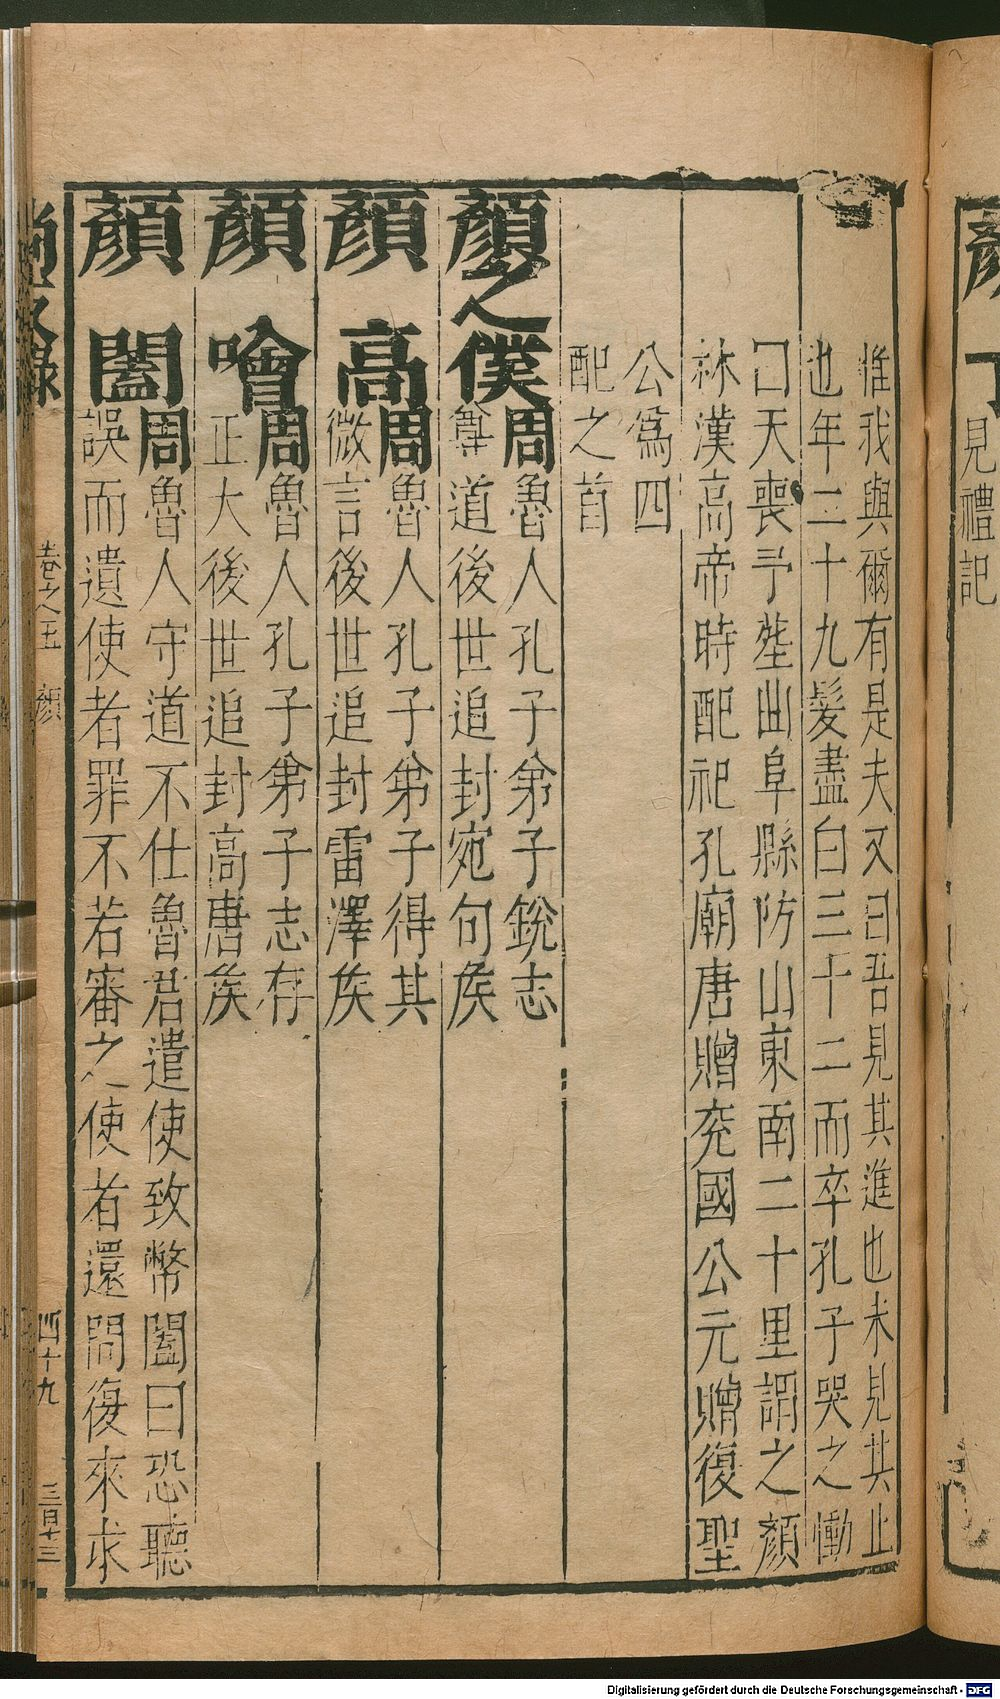 惟我與爾有是夫又曰吾見其進也未見其止
也年二十九髮盡白三十二而卒孔子哭之慟
曰天喪予塟曲阜縣防山東南二十里謂之顏
林漢高帝時配祀孔廟唐贈兖國公元贈復聖
公爲四
配之首
顏之僕
周魯人孔子弟子銳志
尊道後世追封宛句侯
顏高
周魯人孔子弟子得其
微言後世追封雷澤侯
顏噲
周魯人孔子弟子志存
正大後世追封高唐侯
顏闔
周魯人守道不仕魯君遣使致幣闔曰恐聽
誤而遺使者罪不若審之使者還問復來求
卷之五 顏 四十九 三百十三
見禮記
Digitalisierung gefördert durch die Deutsche Forschungsgemeinschaft - DFG